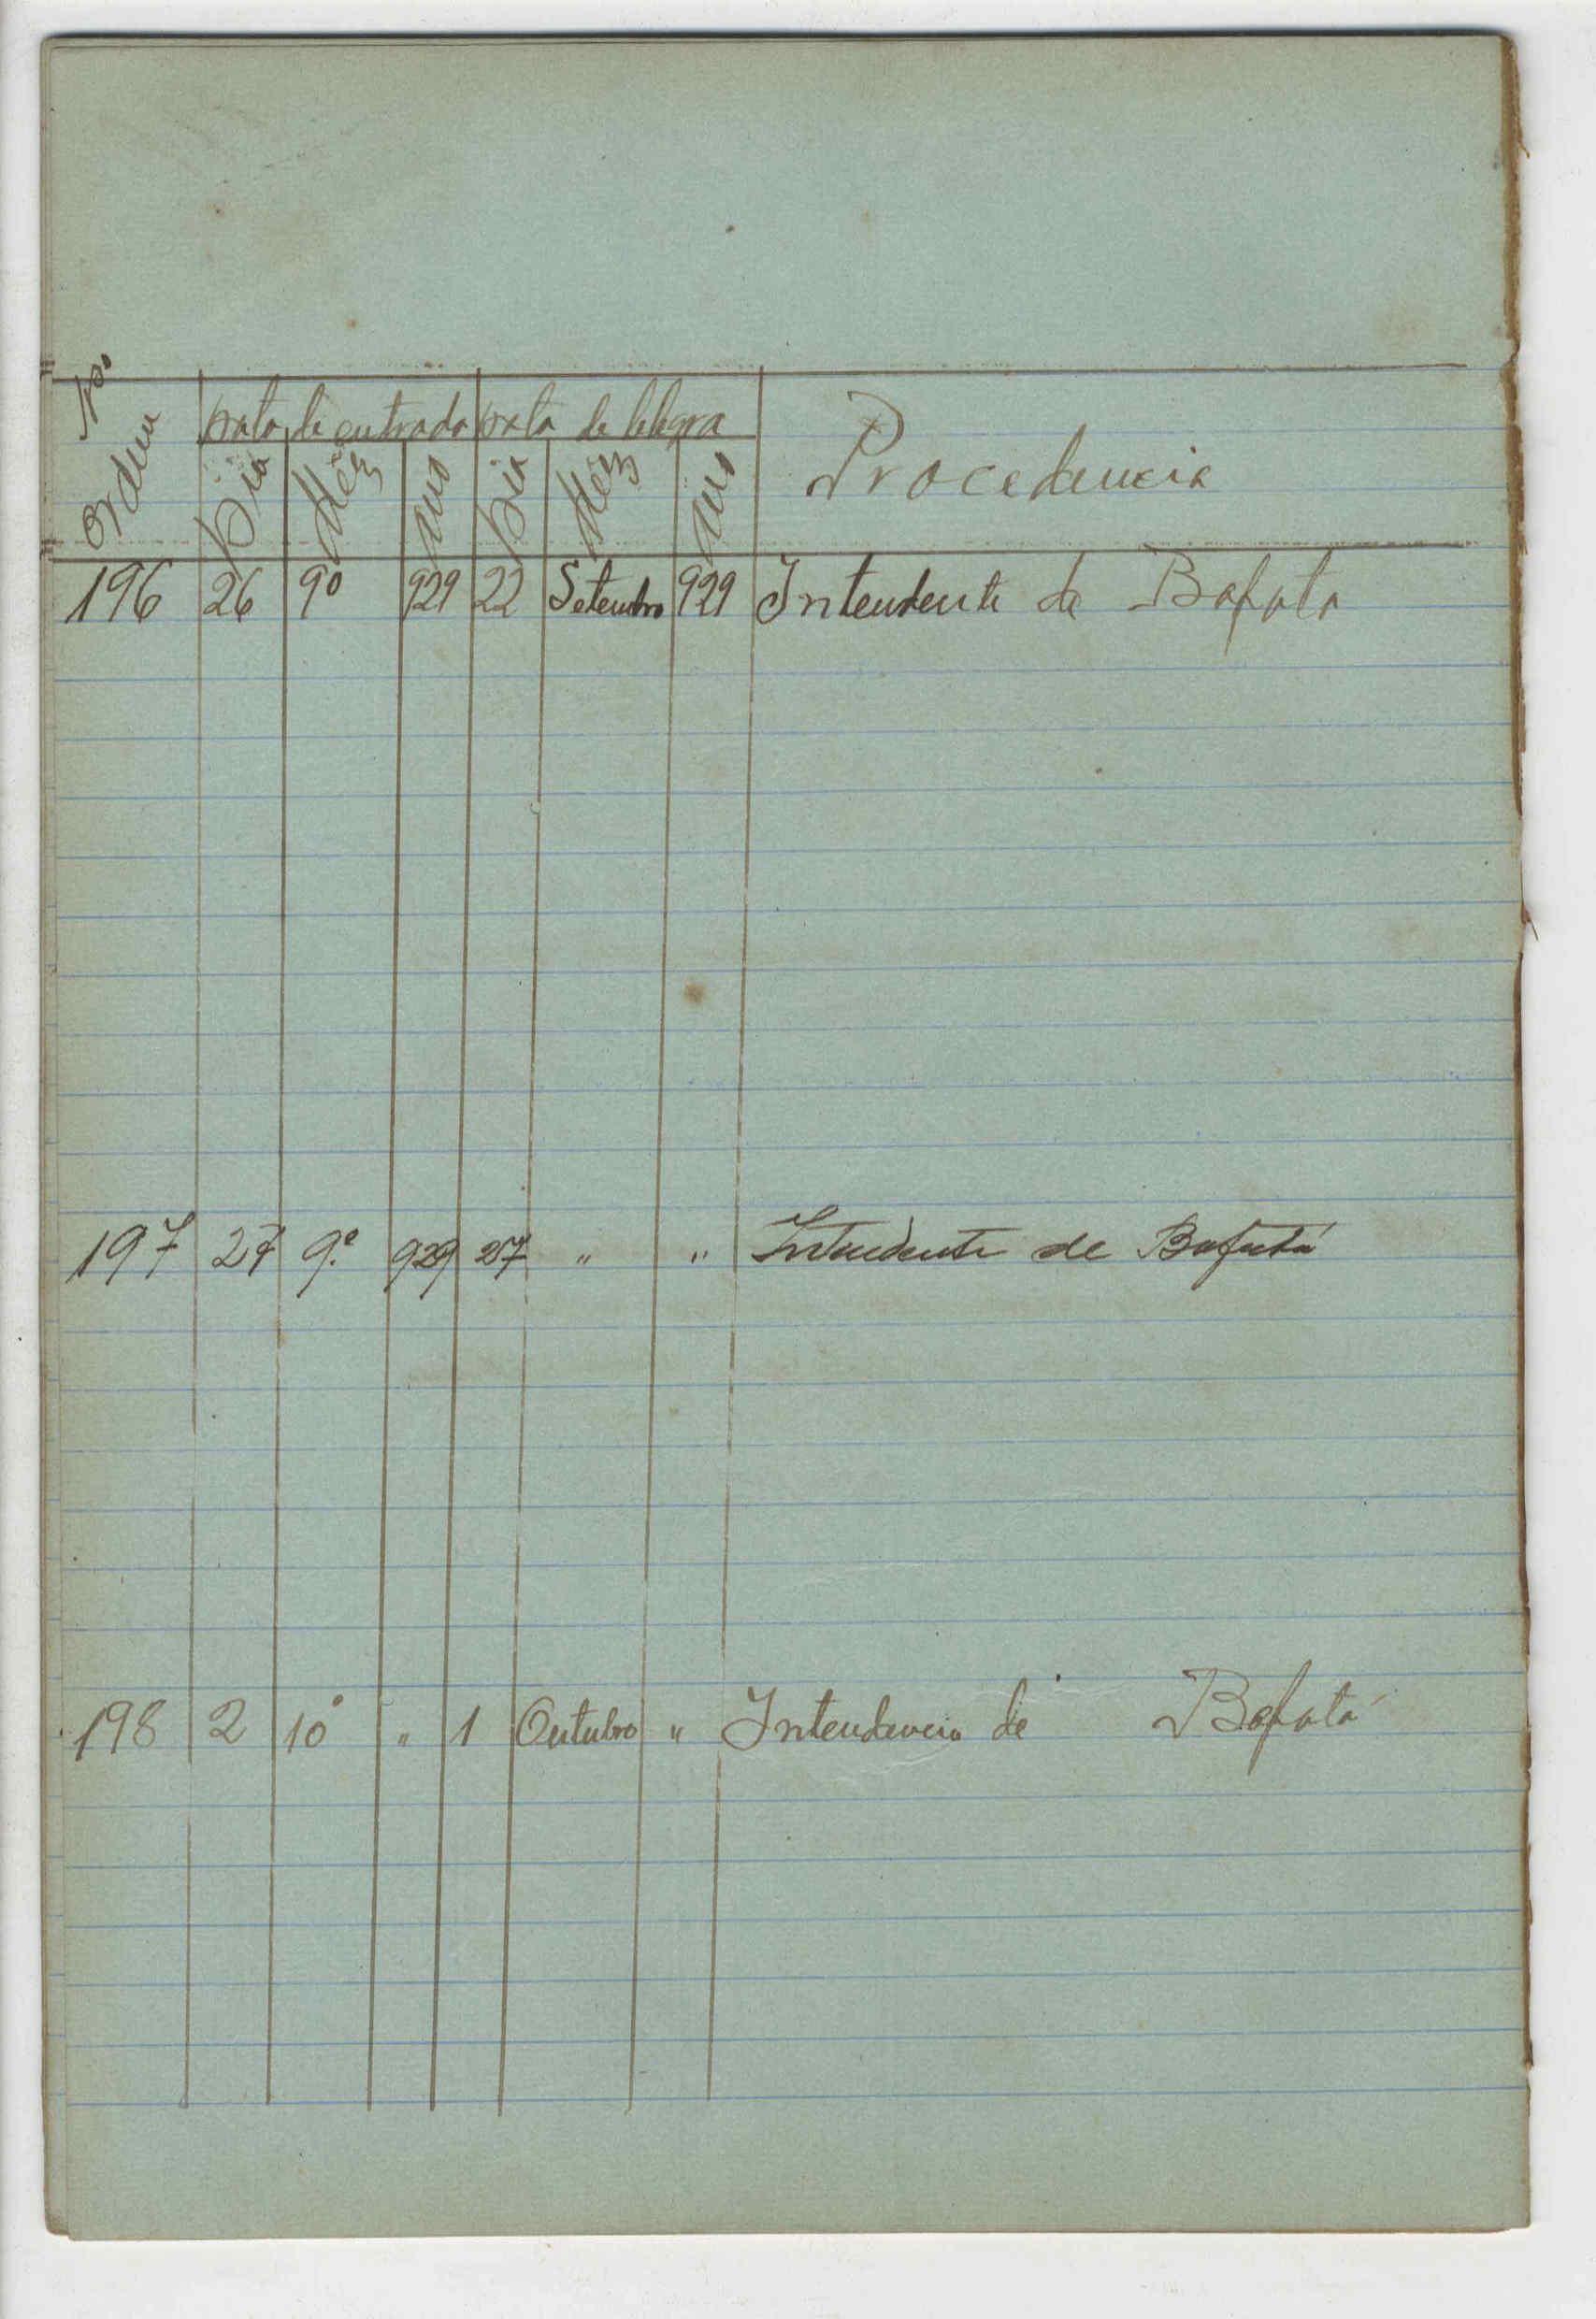 Nº Ordem
Data de entrada Data de telegra Procedencia
Dia Mêz Ano Dia Mêz Ano
196 26 9º 929 22 Setembro 929 Intendente de Bafata
197 27 9.º 929 27 " " Intendente de Bafatá
198 2 10º " 1 Outubro " Intendencia de Bafatá